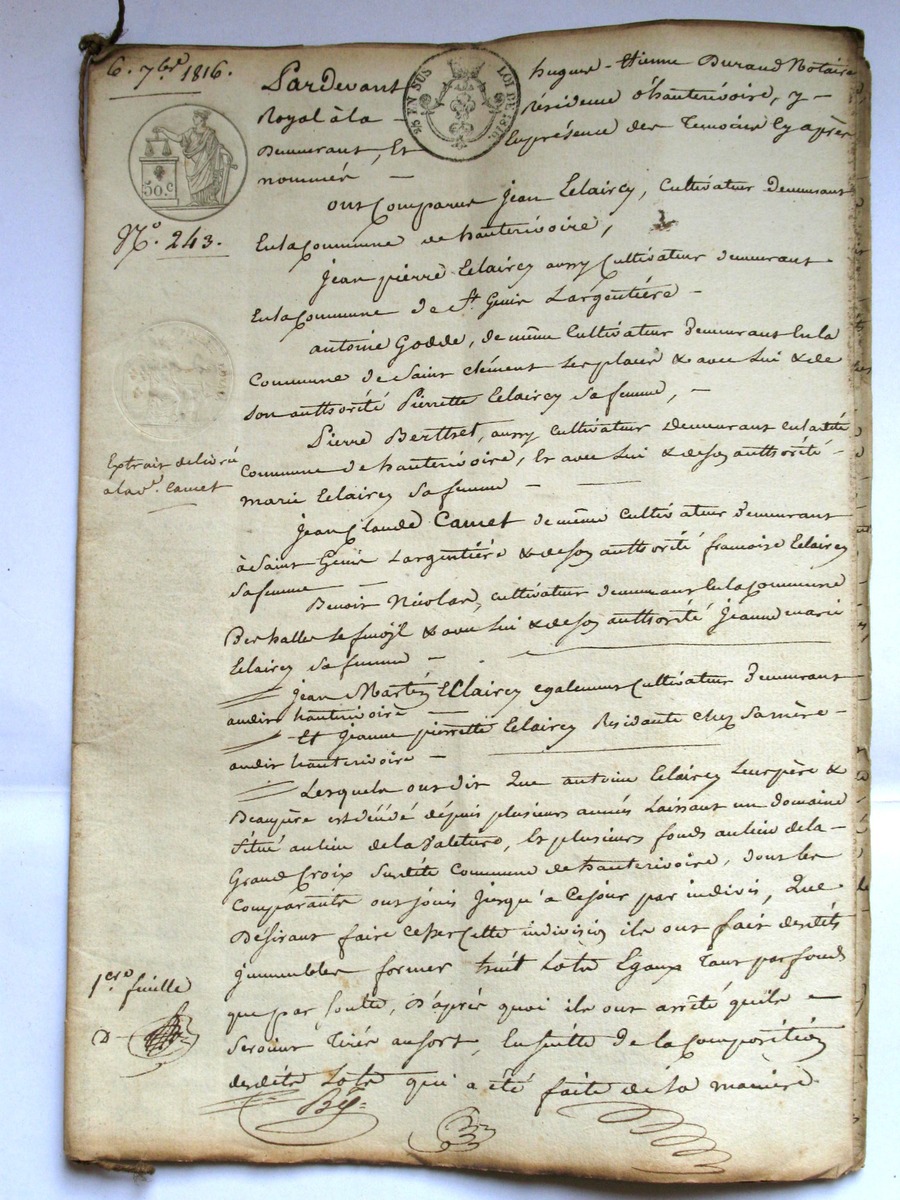 6. 7bre 1816.
25 EN SUS LOI DE 1816.
50. c
No. 243.
Extrait délivré
a la ve. Camet
1ere feuille
D
Pardevant hugues-Etienne Durand Notaire
Royal à la résidence d'hauterivoire, y -
Demeurant, Et En présence des Temoins Cy après
nommés -
ont Comparus Jean Eclaircy, Cultivateur demeurant
En la Commune de hauterivoire,
Jean pierre Eclaircy aussy Cultivateur demeurant
En la Commune de St. Genis L'argentière -
antoine Godde, de même Cultivateur demeurant En la
Commune de Saint clément les places & avec Lui & de
son authorité Pierrette Eclaircy sa femme, -
Pierre Berthet, aussy Cultivateur demeurant en la dite
Commune de hauterivoire, Et avec Lui & de son authorité -
marie Eclaircy sa femme -
Jean Claude Camet de même Cultivateur demeurant
à Saint Genis L'argentière & de son authorité francoise Eclaircy
sa femme -
Benoit Nicolas, cultivateur demeurant En la Commune
Des halles le & avec Lui & de son authorité Jeanne marie
Eclaircy sa femme -
Jean Martin Eclaircy egalement Cultivateur demeurant
audit hauterivoire -
Et Jeanne pierrette Eclaircy Residante chez sa mère -
audit hauterivoire -
Lesquels ont dit Que antoine Eclaircy Leur père &
Beaupère est décédé depuis plusieurs années Laissant un domaine
situé au lieu de la Et plusieurs fonds au lieu de la -
Grand Croix susdite Commune de hauterivoire, dont les
Comparants ont joui Jusqu'a Ce jour par indivis, Que
Désirant faire Cesser Cette indivision ils ont fait desdits
jmmeubles former huit Lots Egaux Tant par fonds
que par soulte, D'après quoi ils ont arrêté qu'ils -
seroient Tirés au sort, En suitte de la Composition
desdits Lots qui a été faite de la manière